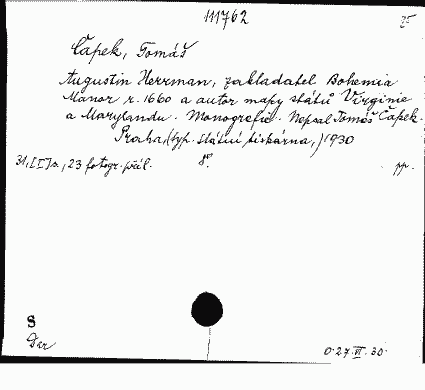 111762
Čapek, Tomáš
Augustin Herrman, zakladatel Bohemia
Manor r. 1660 a autor mapy států Virginie
a Marylandu. Monografie. Nepsal Tomáš Čapek.
Praha, (typ. Státní tiskárna,) 1930
31, [I] s, 23 fotogr. příl. 8°. pp.
S
Dar
0.27.VI.30.